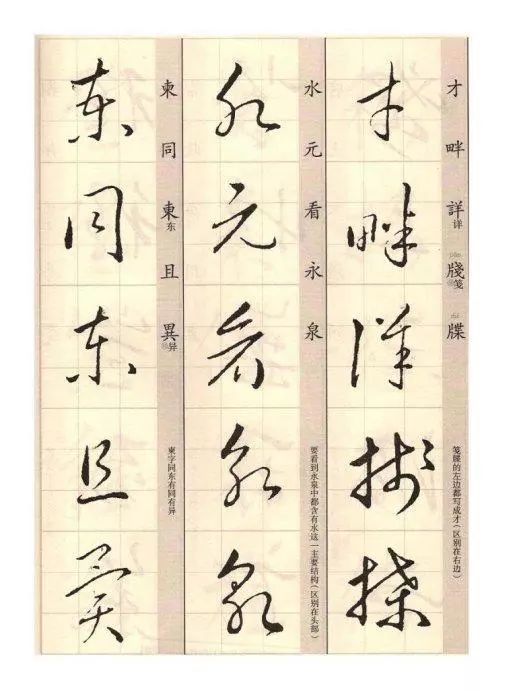 才 畔 詳详 牋笺 牒
笺牒的左边都写成才(区别在右边)
才
畔
詳
牋
牒
水 元 看 永 泉
要看到水泉中都含有水这一主要结构(区别在头部)
水
元
看
永
泉
柬 同 東东 且 異异
柬字同东有同有异
柬
同
東
且
異